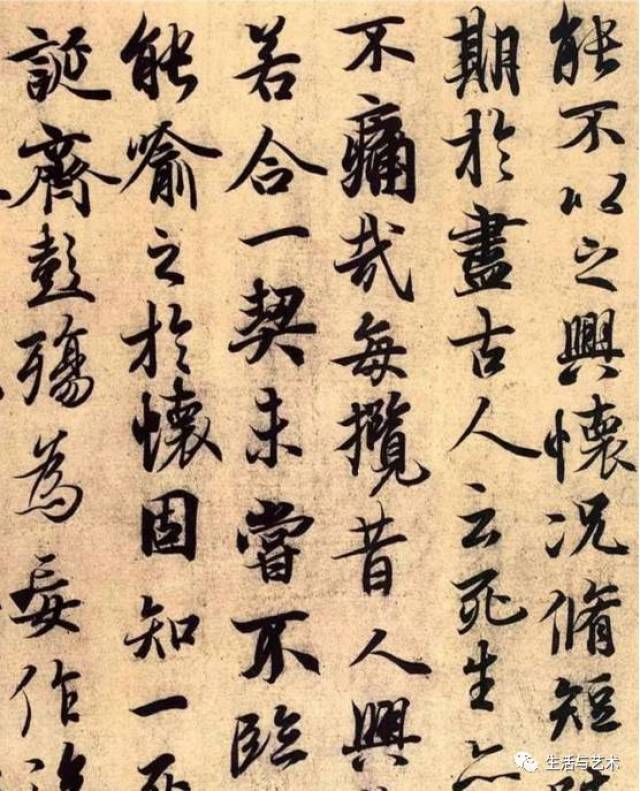 能不以之興懷況脩短
期於盡古人云死生亦
不痛哉每攬昔人興
若合一契未嘗不臨
能喻之於懷固知一死
誕齊彭殤為妄作後
生活与艺术